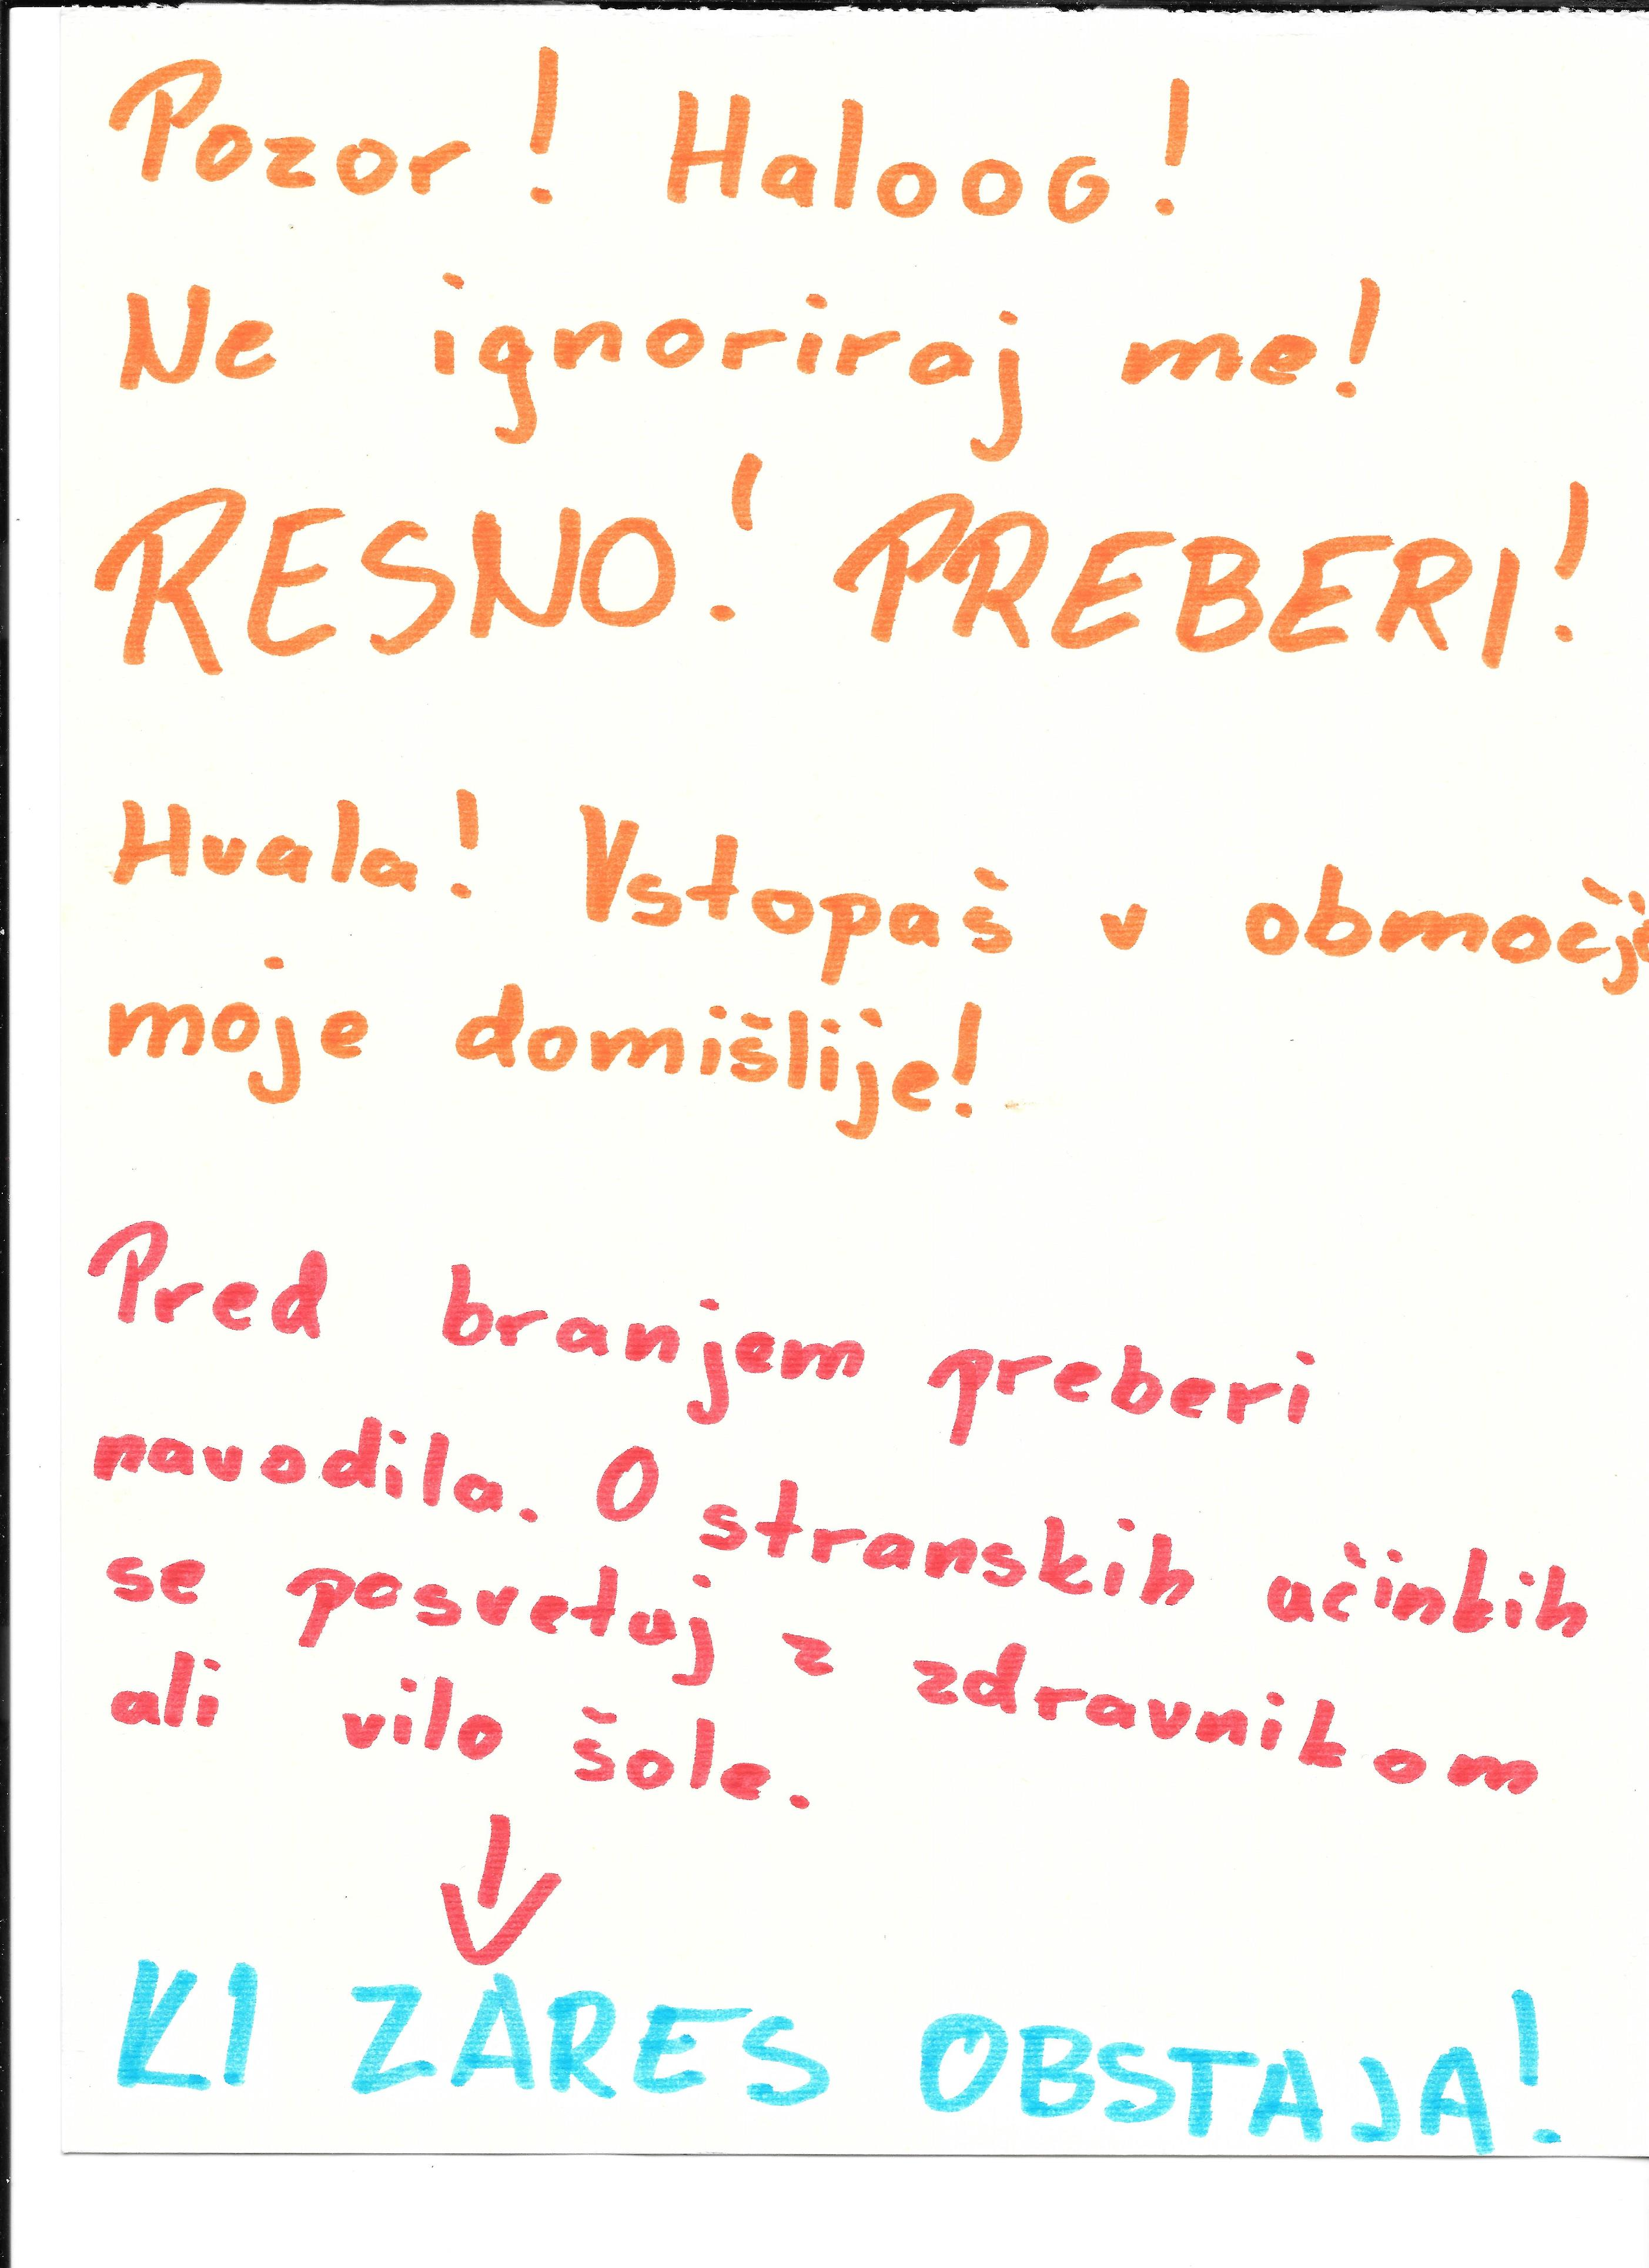 Pozor! Halooo!
Ne ignoriraj me!
RESNO! PREBERI!
Hvala! Vstopaš v območje
moje domišlije!
Pred branjem preberi
navodila. O stranskih učinkih
se posvetuj z zdravnikom
ali vilo šole.
KI ZARES OBSTAJA!